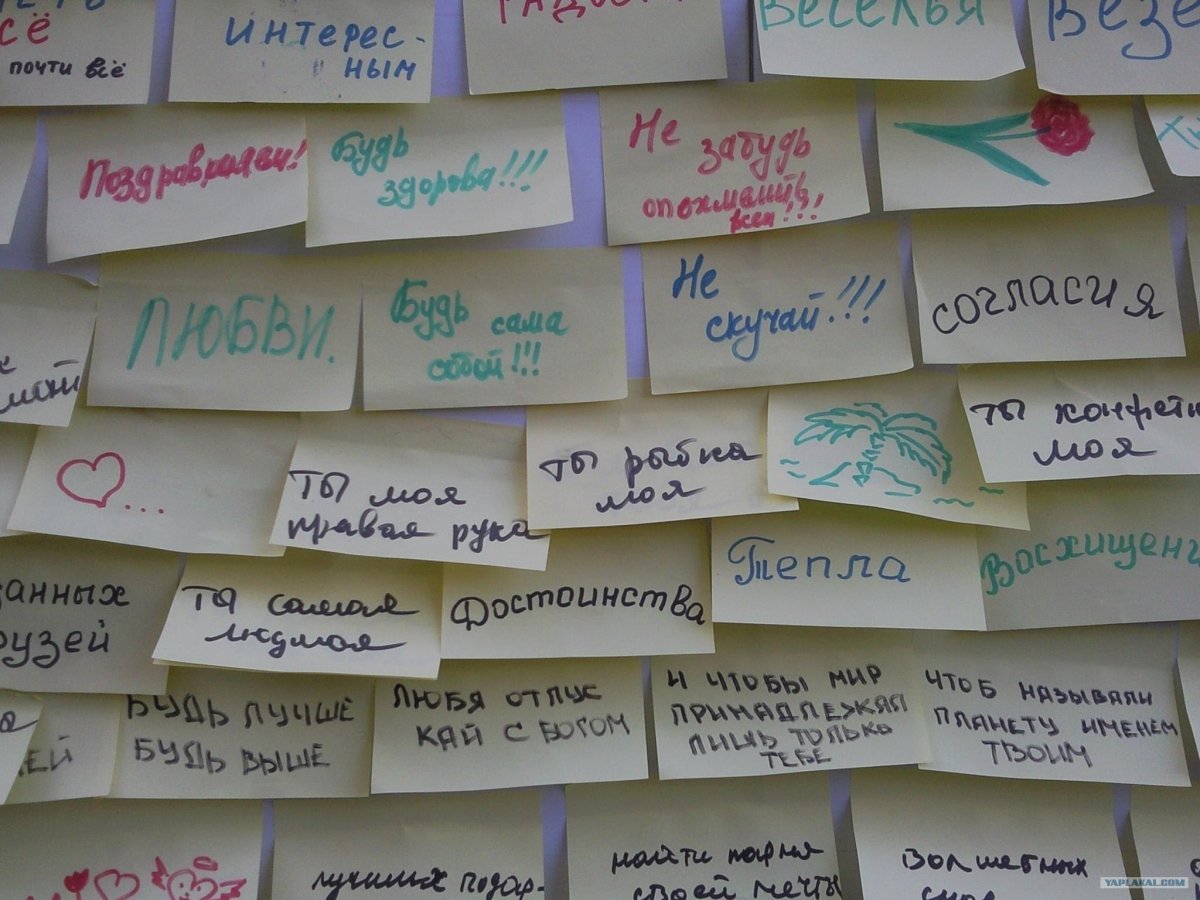 всё
почти всё
интерес-
ным
Веселья
Везе
Поздравляем!
Будь
здорова!!!
Не
забудь
опохмелить
всех!!!
ЛЮБВИ.
Будь сама
собой!!!
Не
скучай!!!
согласия
...
ты моя
правая рука
ты рыбка
моя
ты конфетк
моя
занных
рузей
ты самая
людмоя
Достоинства
Тепла
Восхищени
ЕЙ
БУДЬ ЛУЧШЕ
БУДЬ ВЫШЕ
ЛЮБЯ ОТПУС
КАЙ С БОГОМ
И ЧТОБЫ МИР
ПРИНАДЛЕЖАЛ
ЛИШЬ ТОЛЬКО
ТЕБЕ
ЧТОБ НАЗЫВАЛИ
ПЛАНЕТУ ИМЕНЕМ
ТВОИМ
лучших подар-
найти парня
своей мечты
волшебных
YAPLAKAL.COM